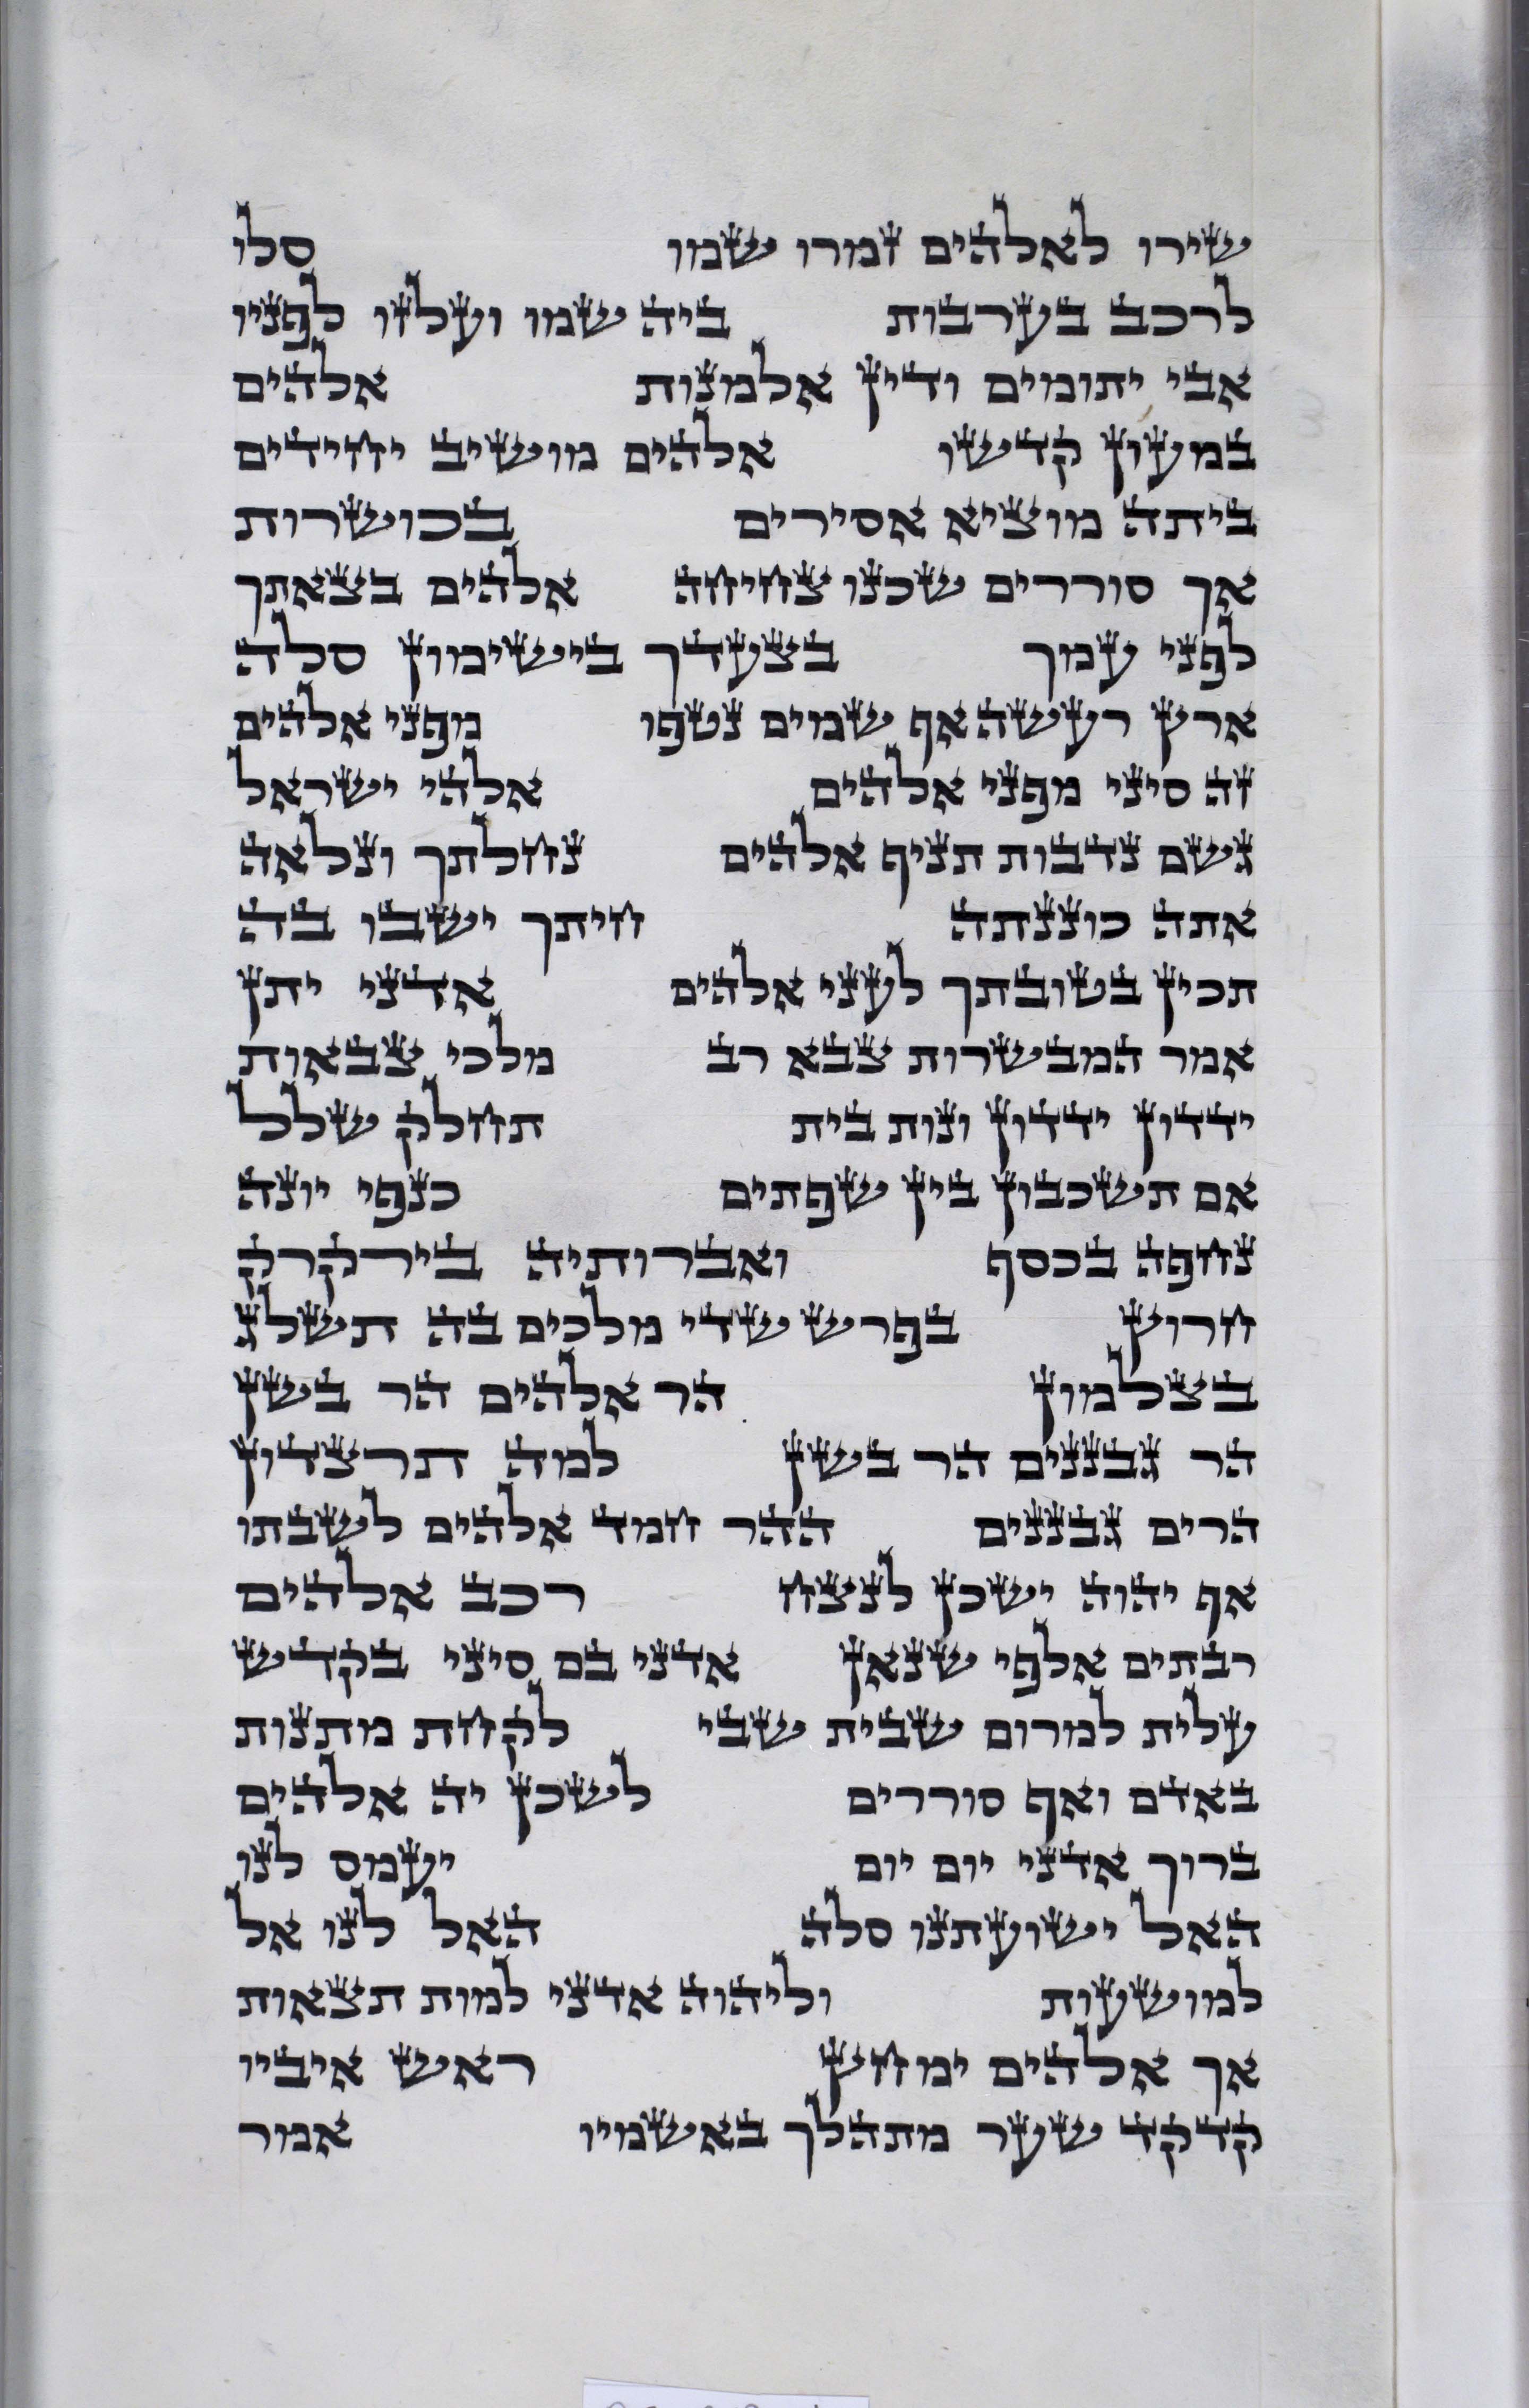 שירו לאלהים זמרו שמו סלו
לרכב בערבות ביה שמו ועלזו לפניו
אבי יתומים ודין אלמנות אלהים
במעון קדשו אלהים מושיב יחידים
ביתה מוציא אסירים בכושרות
אך סוררים שכנו צחיחה אלהים בצאתך
לפני עמך בצעדך בישימון סלה
ארץ רעשה אף שמים נטפו מפני אלהים
זה סיני מפני אלהים אלהי ישראל
גשם נדבות תניף אלהים נחלתך ונלאה
אתה כוננתה חיתך ישבו בה
תכין בטובתך לעני אלהים אדני יתן
אמר המבשרות צבא רב מלכי צבאות
ידדון ידדון ונות בית תחלק שלל
אם תשכבון בין שפתים כנפי יונה
נחפה בכסף ואברותיה בירקרק
חרוץ בפרש שדי מלכים בה תשלג
בצלמון הר אלהים הר בשן
הר גבננים הר בשן למה תרצדון
הרים גבננים ההר חמד אלהים לשבתו
אף יהוה ישכן לנצח רכב אלהים
רבתים אלפי שנאן אדני בם סיני בקדש
עלית למרום שבית שבי לקחת מתנות
באדם ואף סוררים לשכן יה אלהים
ברוך אדני יום יום יעמס לנו
האל ישועתנו סלה האל לנו אל
למושעות וליהוה אדני למות תצאות
אך אלהים ימחץ ראש איביו
קדקד שער מתהלך באשמיו אמר